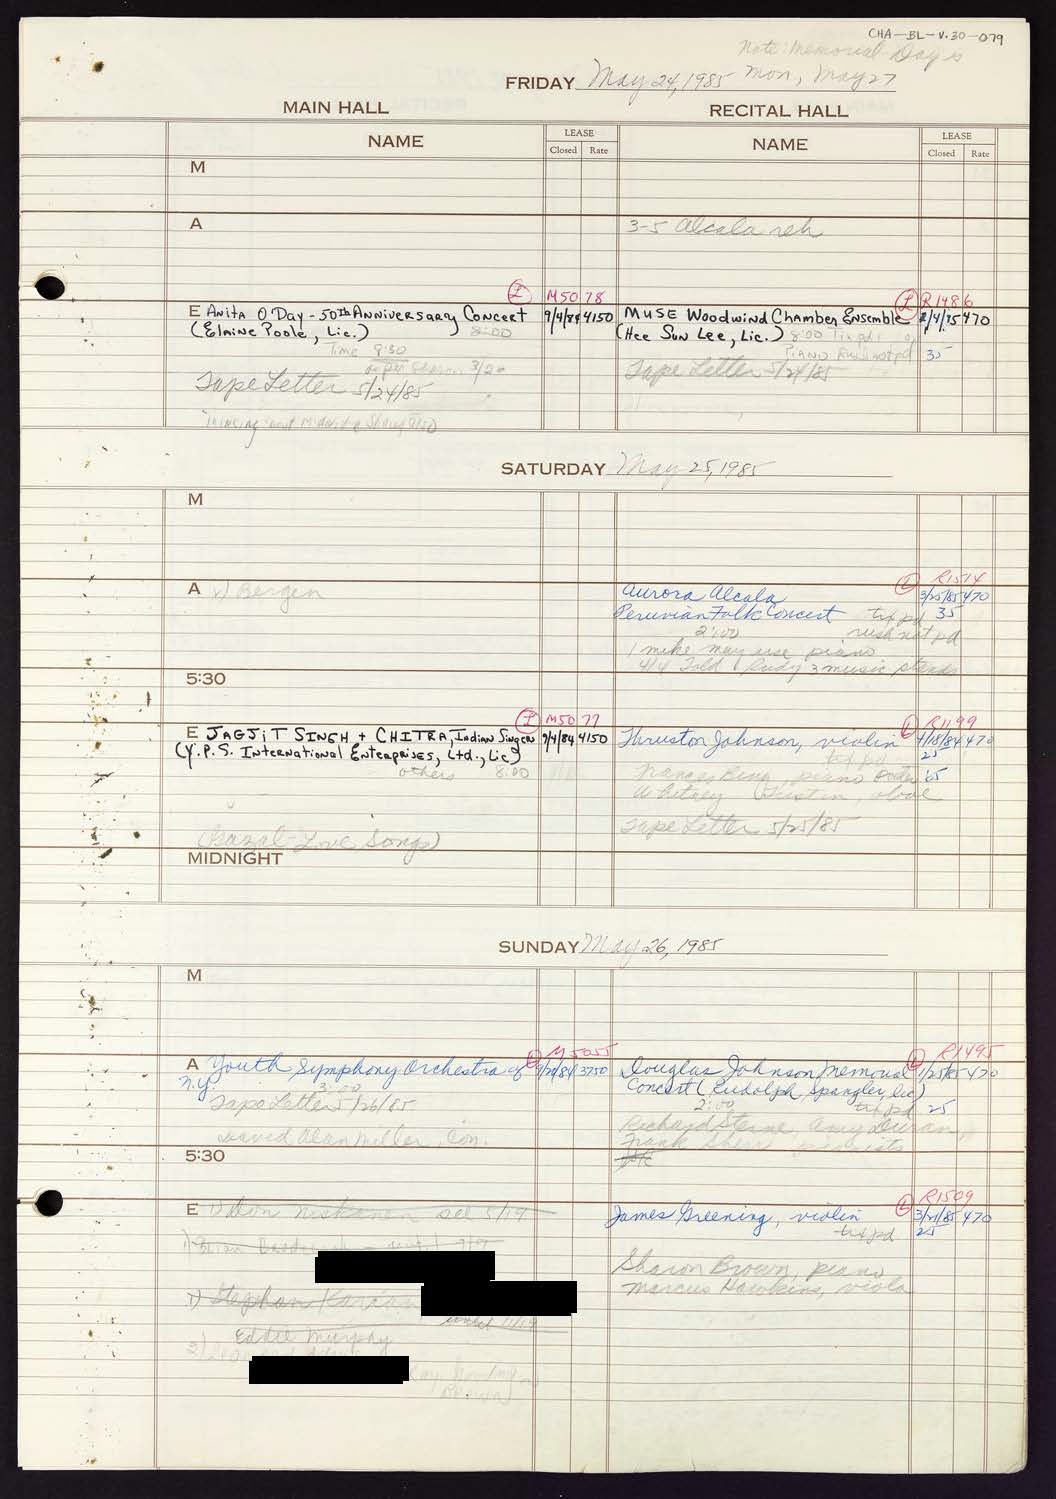 CHA-BL-V.30-079
Note: Memorial Day is
Mon, May 27
FRIDAY May 24, 1985
MAIN HALL
RECITAL HALL
NAME
LEASE
Closed Rate
NAME
LEASE
Closed Rate
M
A
3-5 Alcala reh
L M5078
E Anita O'Day - 50th Anniversary Concert 9/4/84 4150
(Elaine Poole, Lic.) 8:00
Time 8:30
as per Sharon 3/20
Tape Letter 5/24/85
L R1486
MUSE Woodwind Chamber Ensemble 2/4/85 470
(Hee Sun Lee, Lic.) 8:00 Tix pd
PIANO Rush not pd 35
Tape Letter 5/24/85
SATURDAY May 25, 1985
M
A Bergen
L R1514
Aurora Alcala 3/25/85 470
Peruvian Folk Concert tix pd 35
2:00 rush not pd
1 mike may use piano
4/4 Told Rudy 3 music stands
5:30
L M5077
E JAGJIT SINGH + CHITRA, Indian Singers 9/4/84 4150
(Y.P.S. International Enterprises, Ltd., Lic)
others 8:00
(Gazal-Love Songs)
L R1199
Thruston Johnson, violin 4/18/84 470
tix pd 25
Frances piano
Whitney oboe
Tape Letter 5/25/85
MIDNIGHT
SUNDAY May 26, 1985
M
L M5055
A Youth Symphony Orchestra of 9/20/84 3750
N.Y. 3:00
Tape Letter 5/26/85
David Alan Miller, Con.
L R1495
Douglas Johnson Memorial 1/25/85 470
Concert (Rudolph Spangler, lic)
2:00 tix pd 25
Richard Sterne Amy Duran,
Frank pianists
5:30
E 1) Don Niskanen 5/19
Stephan
Eddie Murphy
2)
L R1509
James Greening, violin 3/21/85 470
tix pd 25
Sharon Brown, piano
Marcus Hawkins, viola